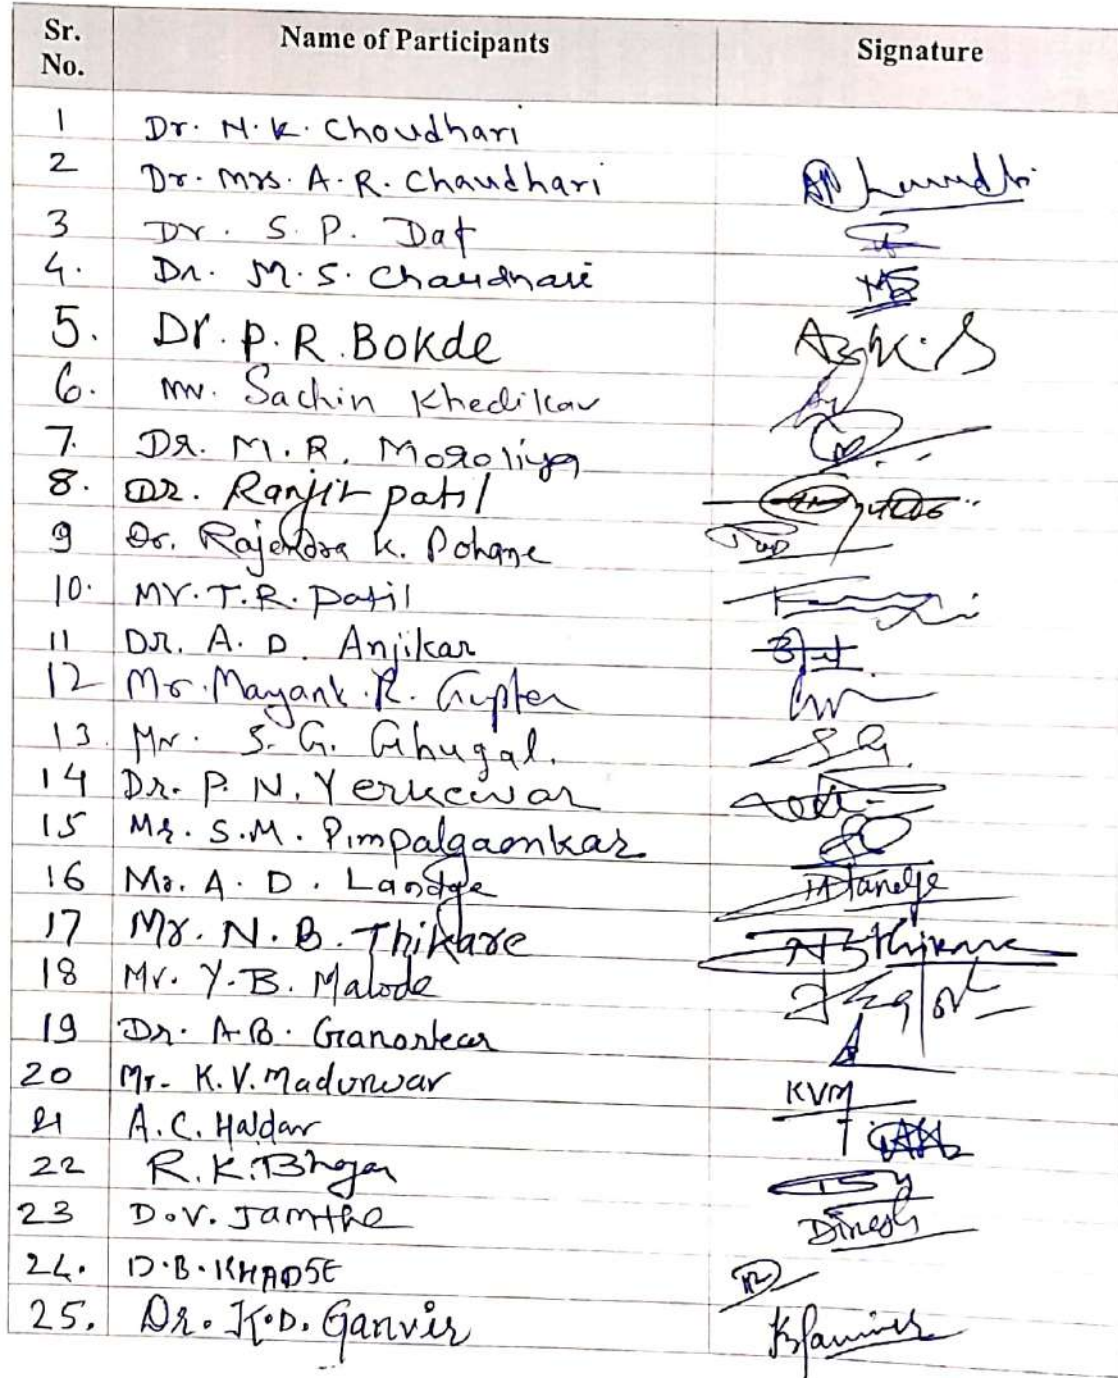 Sr. No. Name of Participants Signature
1 Dr. N.K. Choudhari
2 Dr. Mrs. A.R. Chaudhari
3 Dr. S. P. Daf
4. Dr. M.S. Chaudhari
5. Dr. P.R. BOKde
6. Mr. Sachin Khedikar
7. Dr. M.R. Moroliya
8. Dr. Ranjit patil
9 Dr. Rajendra K. Pohane
10. Mr. T.R. Patil
11 Dr. A. D. Anjikar
12 Mr. Mayank R. Gupta
13. Mr. S. G. Ghugal.
14 Dr. P. N. Yerkewar
15 Mr. S.M. Pimpalgaonkar
16 Mr. A. D. Landge
17 Mr. N. B. Thikare NBThikare
18 Mr. Y.B. Malode
19 Dr. A.B. Ganorkar
20 Mr. K.V. Madurwar KVM
21 A.C. Haldar
22 R.K. Bhojar
23 D.V. Jamthe Dinesh
24. D.B. KHADSE
25. Dr. K.D. Ganvir